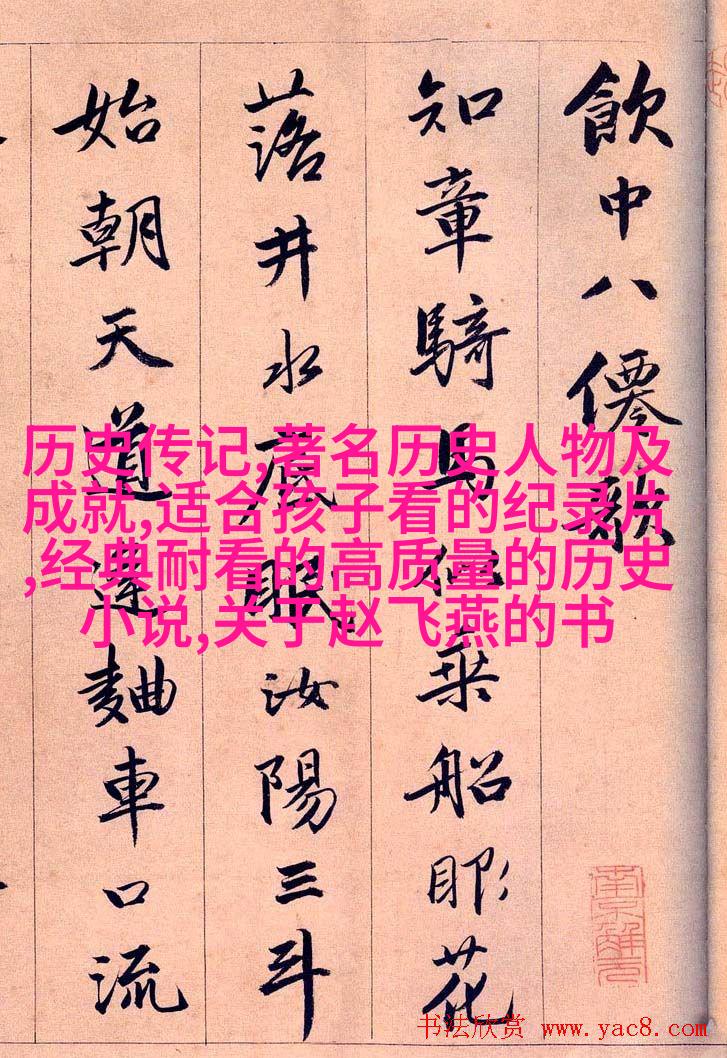 飲中八僊歌
知章騎馬似乘船眼花
落井水底眠汝陽三斗
始朝天道逢麯車口流
历史传记,著名历史人物及
成就,适合孩子看的纪录片
,经典耐看的高质量的历史
小说,关于赵飞燕的书
南京解元
书法欣赏 www.yac8.com